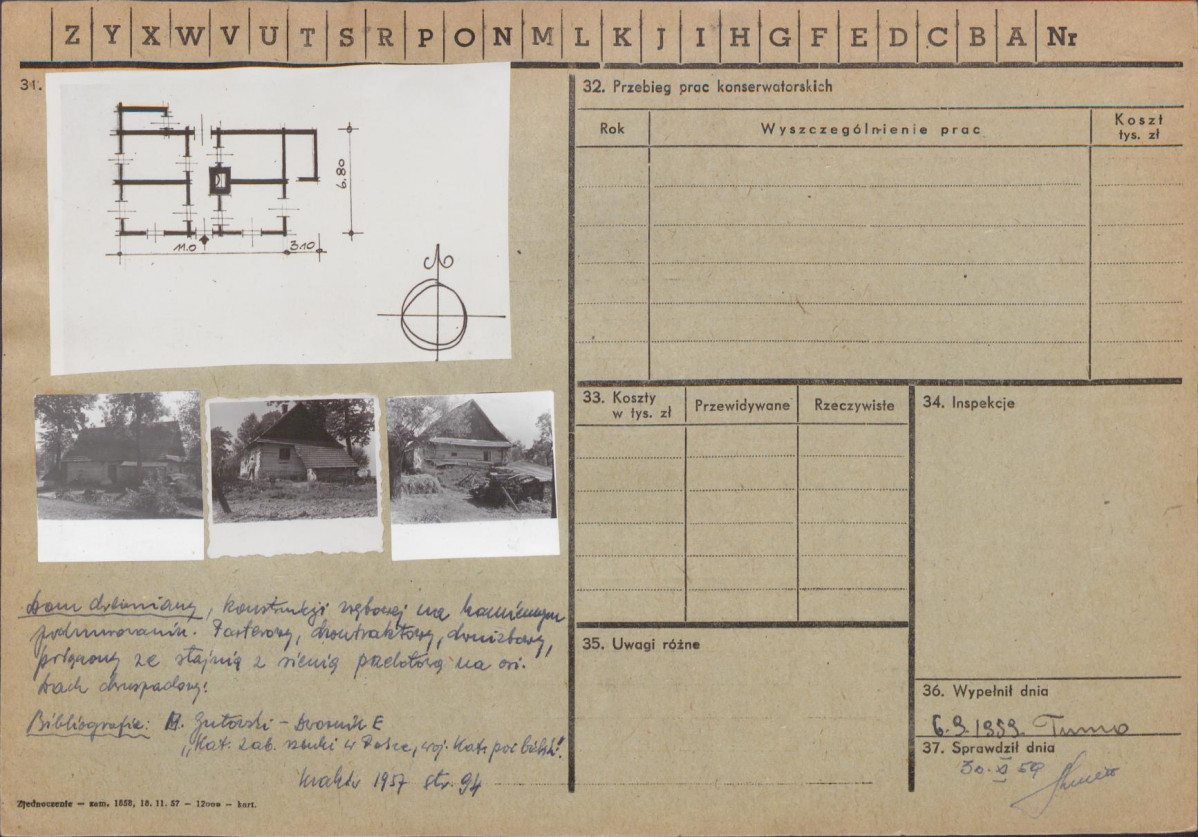 Z Y X W V U T S R P O N M L K J I H G F E D C B A Nr
31.
6.80
11.0
3.10
Dom drewniany, konstrukcji zrębowej na kamiennym
podmurowaniu. Parterowy, dwutraktowy, dwuizbowy,
połączony ze stajnią z sienią przelotową na osi.
Dach dwuspadowy.
Bibliografia: Gutowski - Dwornik E
"Kat. zab. sztuki w Polsce, woj. Kat. pow. Bielski".
Kraków 1957 str. 94
Zjednoczenie — zam. 1858, 18. 11. 57 — 12000 — kart.
32. Przebieg prac konserwatorskich
Rok
Wyszczególnienie prac
Koszt
tys. zł
33. Koszty
w tys. zł
Przewidywane
Rzeczywiste
34. Inspekcje
35. Uwagi różne
36. Wypełnił dnia
6.9.1959.
37. Sprawdził dnia
59